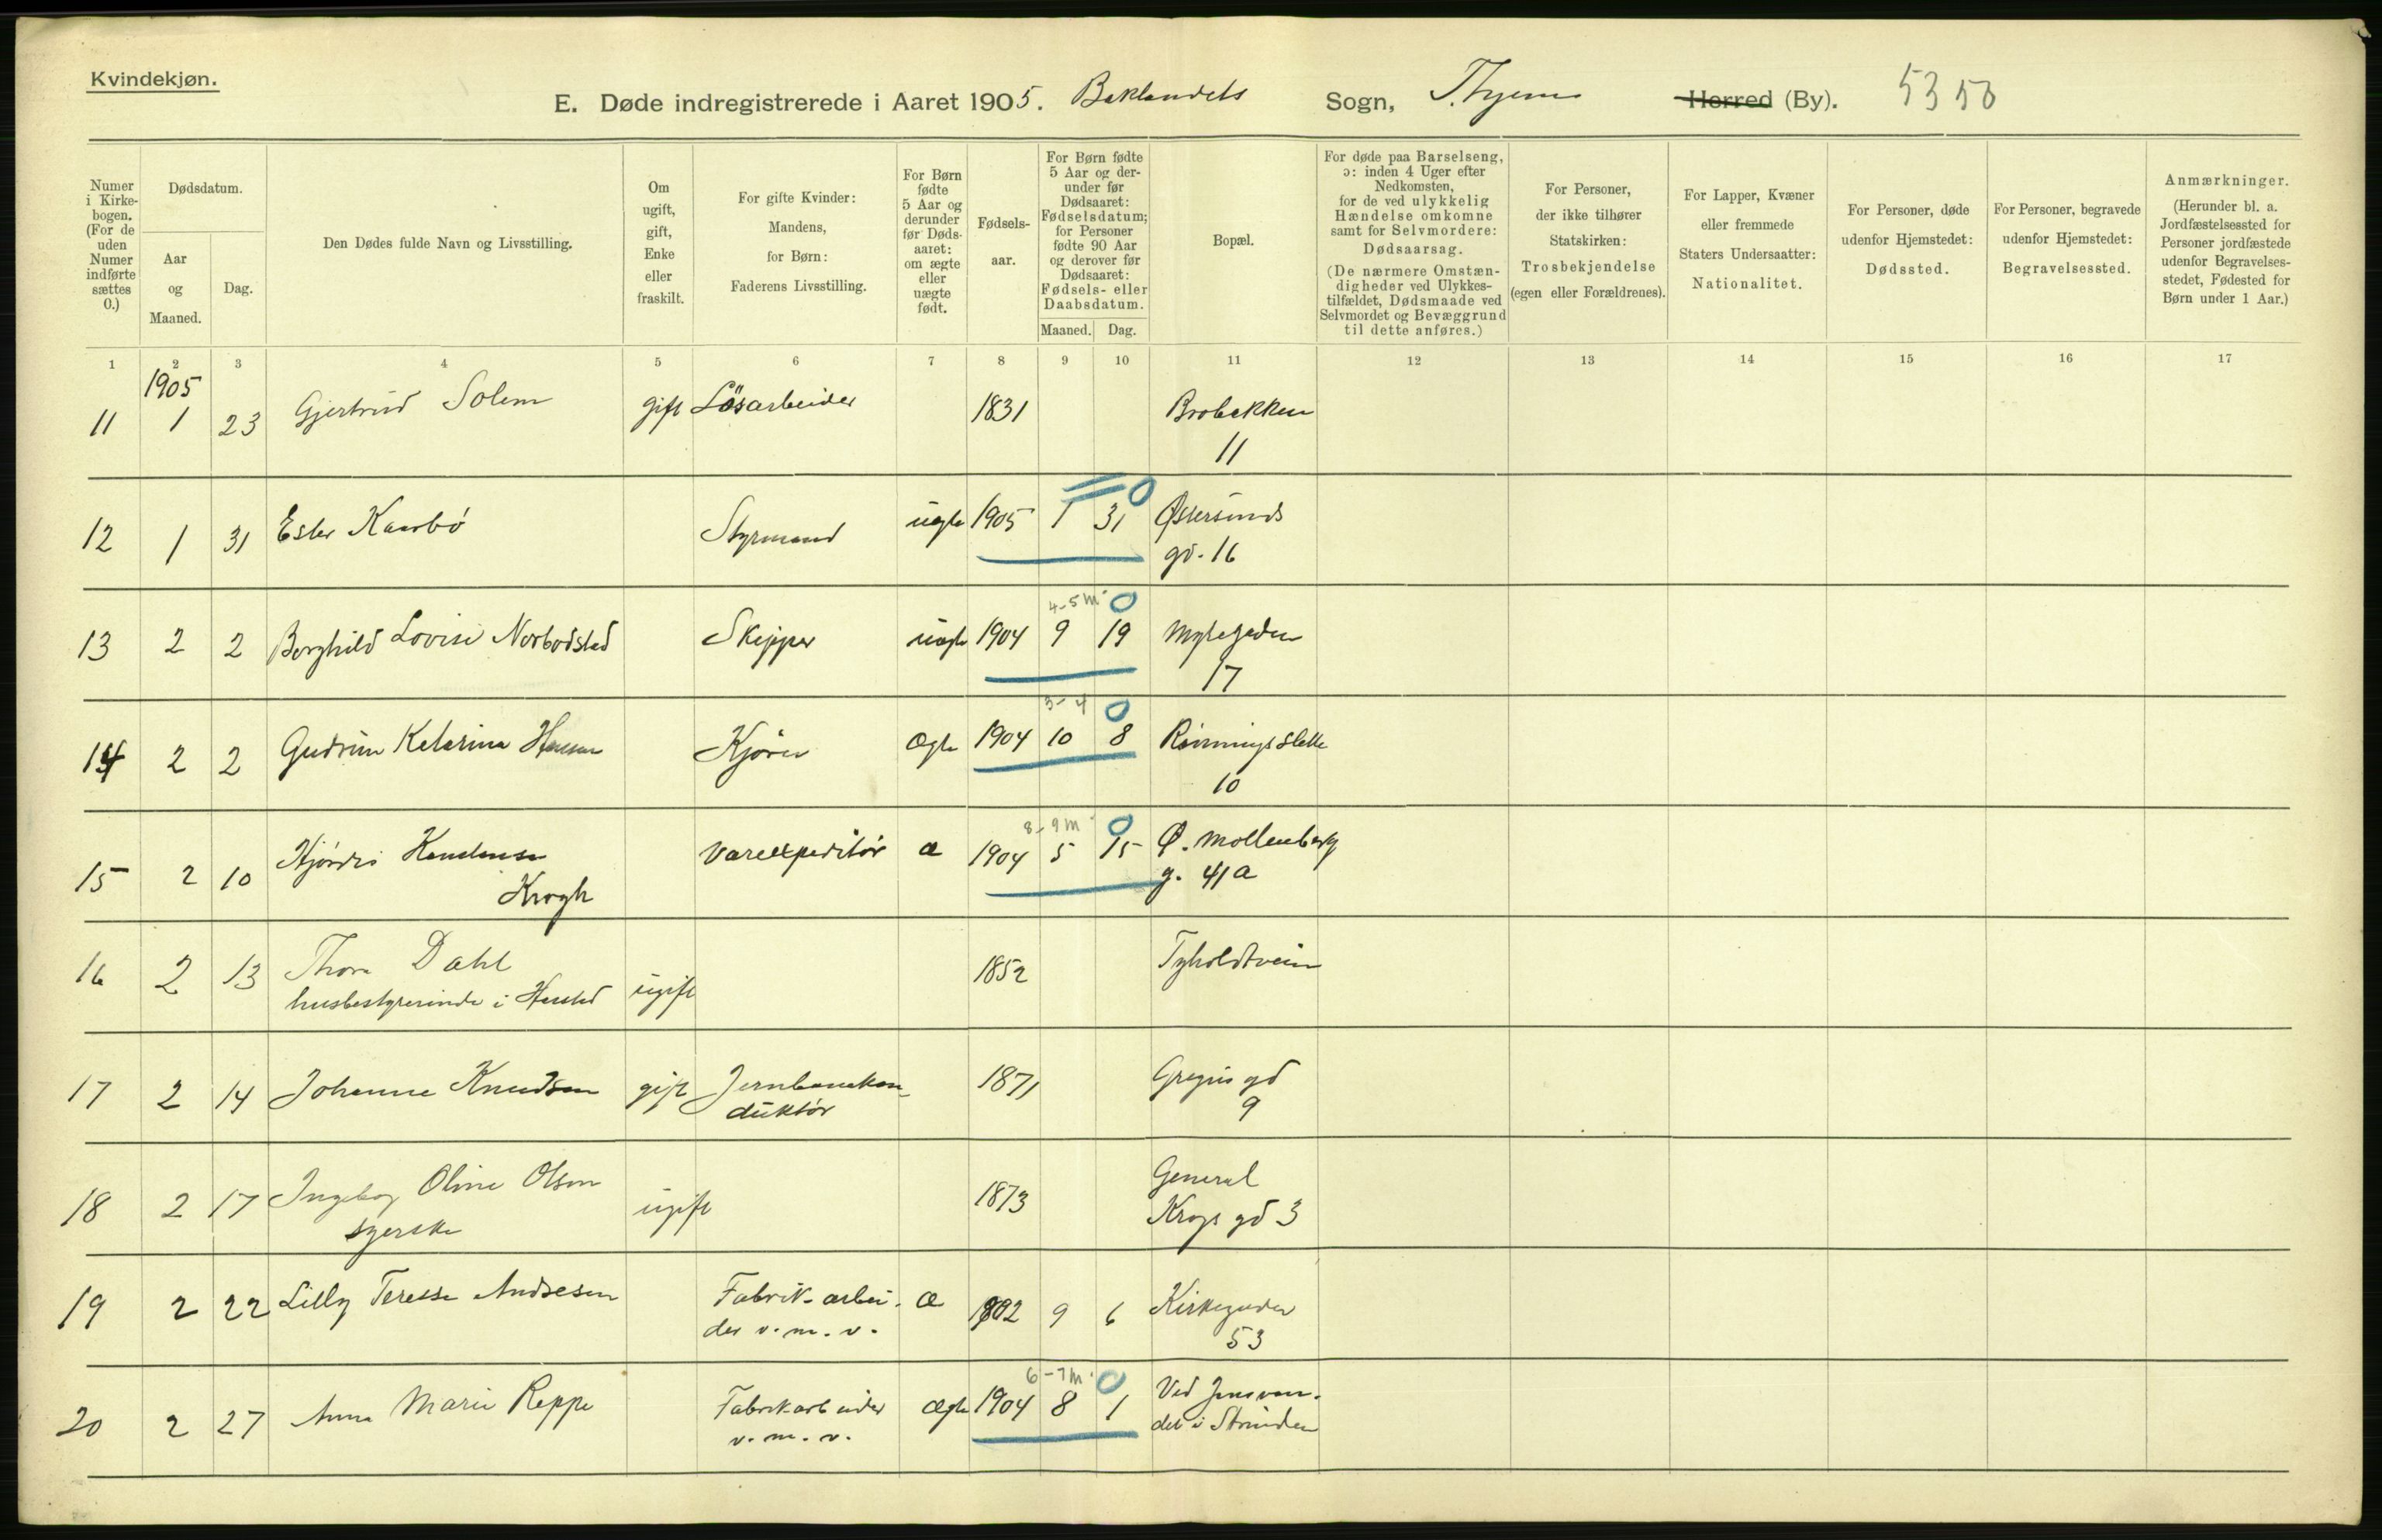 Kvindekjøn.
E. Døde indregistrerede i Aaret 1905. Baklandets Sogn, T.hjem Herred (By). 5350
Numer i Kirkebogen. (For de uden Numer indførte sættes 0.)
Dødsdatum.
Aar og Maaned.
Dag.
Den Dødes fulde Navn og Livsstilling.
Om ugift, gift, Enke eller fraskilt.
For gifte Kvinder: Mandens, for Børn: Faderens Livsstilling.
For Børn fødte 5 Aar og derunder før Dødsaaret: om ægte eller uægte født.
Fødselsaar.
For Børn fødte 5 Aar og derunder før Dødsaaret: Fødselsdatum; for Personer fødte 90 Aar og derover før Dødsaaret: Fødsels- eller Daabsdatum.
Maaned. Dag.
Bopæl.
For døde paa Barselseng, ɔ: inden 4 Uger efter Nedkomsten, for de ved ulykkelig Hændelse omkomne samt for Selvmordere: Dødsaarsag.
(De nærmere Omstændigheder ved Ulykkestilfældet, Dødsmaade ved Selvmordet og Bevæggrund til dette anføres.)
For Personer, der ikke tilhører Statskirken: Trosbekjendelse (egen eller Forældrenes).
For Lapper, Kvæner eller fremmede Staters Undersaatter: Nationalitet.
For Personer, døde udenfor Hjemstedet: Dødssted.
For Personer, begravede udenfor Hjemstedet: Begravelsessted.
Anmærkninger. (Herunder bl. a. Jordfæstelsessted for Personer jordfæstede udenfor Begravelsesstedet, Fødested for Børn under 1 Aar.)
1 2 3 4 5 6 7 8 9 10 11 12 13 14 15 16 17
1905
11 1 23 Gjertrud Solem gift Løsarbeider 1831 Brobakken
11
0
12 1 31 Ester Kaarbø Styrmand uægte 1905 1 31 Østersunds
gd. 16
4-5 m. 0
13 2 2 Borghild Lovise Skipper uægte 1904 9 19
17
3-4 0
14 2 2 Gudrun Katarina Hansen Kjører Ægte 1904 10 8 Rønningsslette
10
8-9 m. 0
15 2 10 Hjørdis Vareexpeditør æ 1904 5 15 Ø. Møllenberg
Krogh g. 41a
16 2 13 Thora Dahl ugift 1852 Tyholdtveien
husbestyrerinde i
17 2 14 Johanne Knudsen gift Jernbanekon- 1871 gd
duktør 9
18 2 17 Ingeborg Oline Olsen ugift 1873 General
syerske Krogs gd 3
19 2 22 Lilly Teresse Andresen Fabrik-arbei- æ 1902 9 6 Kirkegaden
der v. m. v. 53
6-7 m. 0
20 2 27 Anna Marie Reppe Fabrikarbeider Ægte 1904 8 1 Ved Jonsvan-
v. m. v. det i Strinden